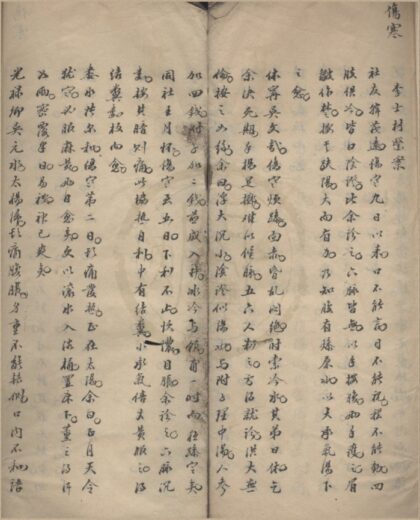 傷寒
李士材醫案
社友韓茂遠傷寒九日以来口不能言目不能視體不能動四
肢俱冷皆曰陰證比余診之六脉皆無以手按腹兩手護之眉
皺作楚按其趺陽大而有力乃知腹有燥屎以大承氣湯下
之愈
休寧吳文哉傷寒煩躁面赤昏乱悶絕時索冷水其弟日休乞
余决死期手揚足擲難以候脉五六人制之方得就診洪大無
倫按之如絲余曰浮大沉小陰證似陽與附子理中湯人參
加四錢附子加二錢煎成入井水冷与飲甫一時而狂躁定矣
同社王月懷傷寒五日下利不止懊憹目脹余診之六脉沉
數按其臍則痛此協熱自利中有結糞小承氣倍大黃服之得
結糞數枚而愈
水陸尔和傷寒第二日頭痛發熱正在太陽余曰正月天令
猶寒必服麻黃兩日愈矣更以滚水入浴桶置床下薰之得汗
如雨密覆半日易被神已爽矣
光禄卿吳元水太陽傷頭痛腹脹身重不能轉側口内不和語